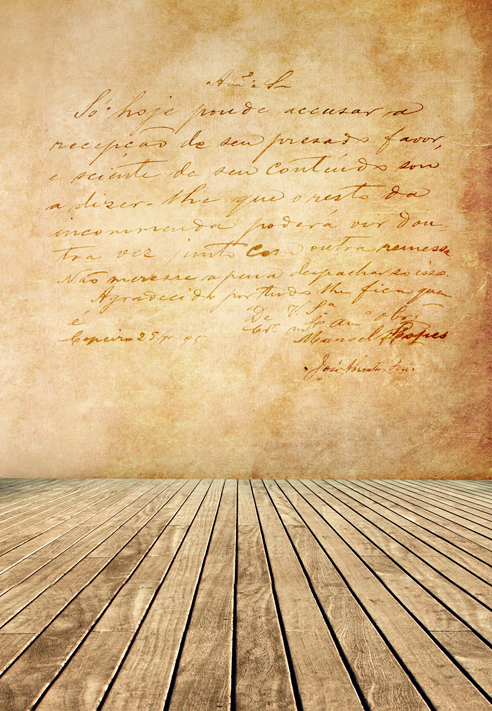 Am.º Sr.
Só hoje poude accusar a
recepção de seu presado favor,
e sciente de seu contéudo sou
a dizer-lhe que o resto da
incommenda poderá vir dou-
tra vez junto com outra remessa
Não merece a pena despachar so isso.
Agradecido por tudo lhe fica quem
é De V. Sa.
Manoel Lopes
José